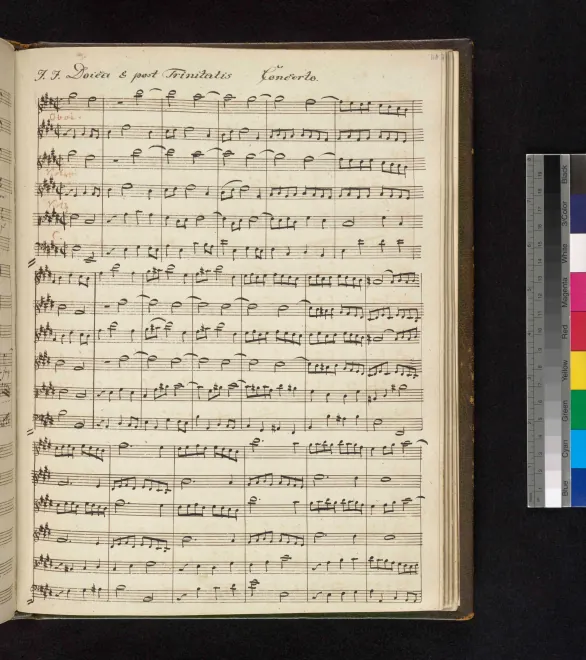 J. J. Doica 8 post Trinitatis Concerto.
Oboe.
C.
Black
3/Color
White
Magenta
Red
Yellow
Green
Cyan
Blue